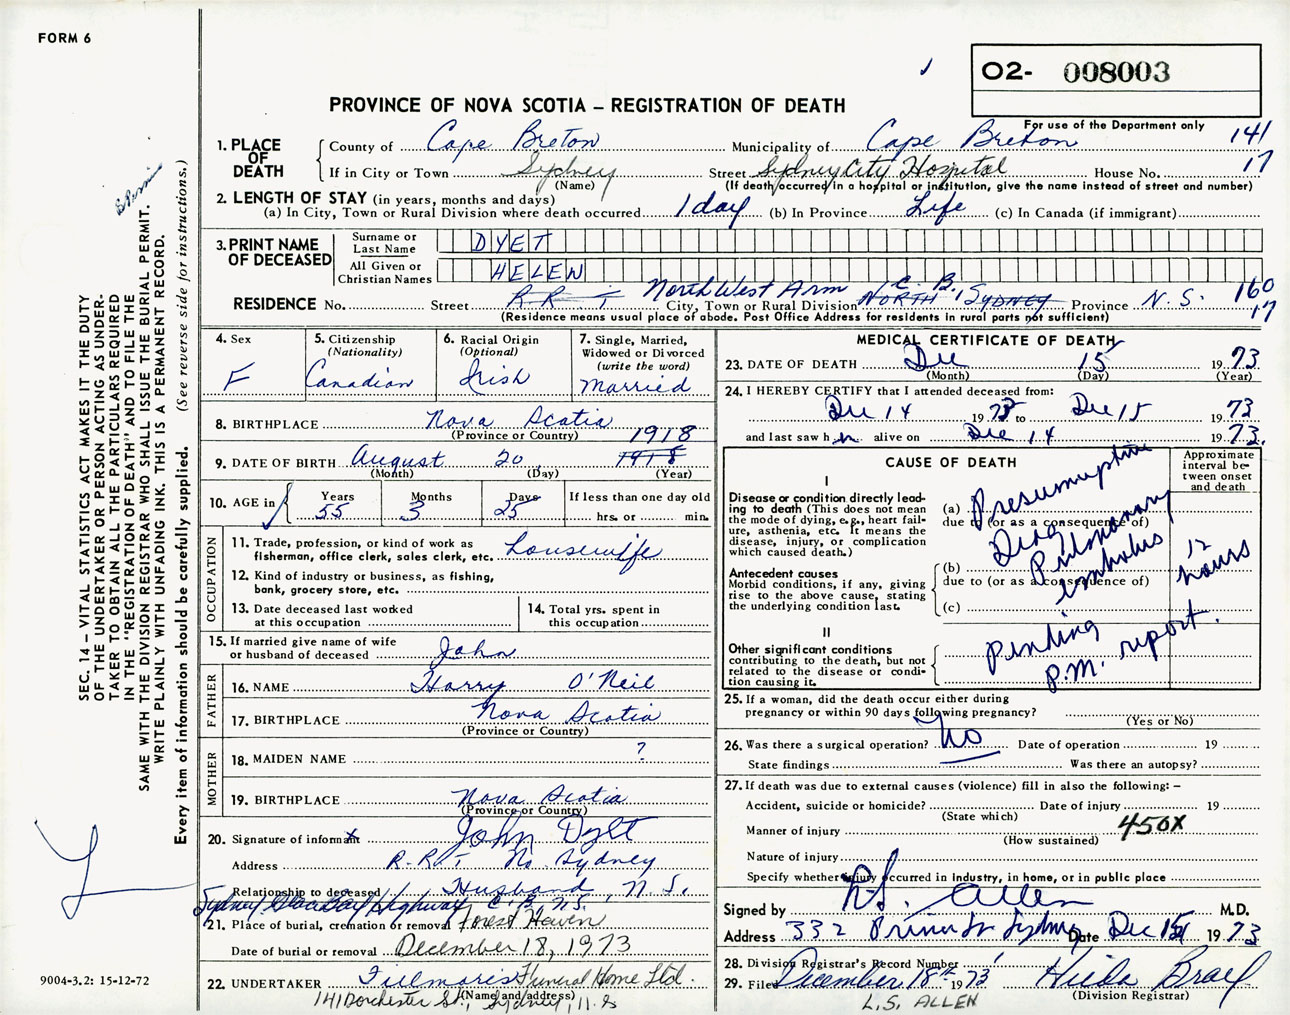 FORM 6
O2- 008003
PROVINCE OF NOVA SCOTIA – REGISTRATION OF DEATH
For use of the Department only
1. PLACE OF DEATH
County of Cape Breton Municipality of Cape Breton 141
If in City or Town Sydney Street Sydney City Hospital House No. 17
(Name) (If death occurred in a hospital or institution, give the name instead of street and number)
2. LENGTH OF STAY (in years, months and days)
(a) In City, Town or Rural Division where death occurred 1 day (b) In Province Life (c) In Canada (if immigrant)
3. PRINT NAME OF DECEASED
Surname or Last Name DYET
All Given or Christian Names HELEN
North West Arm C. B.
RESIDENCE No. Street R.R. 1 City, Town or Rural Division NORTH SYDNEY Province N. S. 160
17
(Residence means usual place of abode. Post Office Address for residents in rural parts not sufficient)
4. Sex
F
5. Citizenship
(Nationality)
Canadian
6. Racial Origin
(Optional)
Irish
7. Single, Married,
Widowed or Divorced
(write the word)
Married
8. BIRTHPLACE Nova Scotia
(Province or Country)
1918
9. DATE OF BIRTH August 20 1918
(Month) (Day) (Year)
10. AGE in
Years Months Days If less than one day old
55 3 25 hrs. or min.
OCCUPATION
11. Trade, profession, or kind of work as
fisherman, office clerk, sales clerk, etc. Housewife
12. Kind of industry or business, as fishing,
bank, grocery store, etc.
13. Date deceased last worked
at this occupation
14. Total yrs. spent in
this occupation
15. If married give name of wife
or husband of deceased John
FATHER
16. NAME Harry O'Neil
17. BIRTHPLACE Nova Scotia
(Province or Country)
MOTHER
18. MAIDEN NAME ?
19. BIRTHPLACE Nova Scotia
(Province or Country)
20. Signature of informant John Dyet
Address R.R. 1, No. Sydney
Relationship to deceased Husband N.S.
Sydney Glace Bay Highway C.B., N.S.
21. Place of burial, cremation or removal Forest Haven
Date of burial or removal December 18, 1973
22. UNDERTAKER Fillmore's Funeral Home Ltd.
(Name and address)
141 Dorchester St., Sydney, N.S
MEDICAL CERTIFICATE OF DEATH
23. DATE OF DEATH Dec 15 1973
(Month) (Day) (Year)
24. I HEREBY CERTIFY that I attended deceased from:
Dec 14 1973 to Dec 15 1973
and last saw her alive on Dec 14 1973.
CAUSE OF DEATH
Approximate interval between onset and death
I
Disease or condition directly lead-
ing to death (This does not mean
the mode of dying, e.g., heart fail-
ure, asthenia, etc. It means the
disease, injury, or complication
which caused death.)
(a) Presumptive
due to (or as a consequence of)
Diag
Pulmonary
embolus
12 hours
Antecedent causes
Morbid conditions, if any, giving
rise to the above cause, stating
the underlying condition last.
(b)
due to (or as a consequence of)
(c)
II
Other significant conditions
contributing to the death, but not
related to the disease or condi-
tion causing it.
pending
P.M. report.
25. If a woman, did the death occur either during
pregnancy or within 90 days following pregnancy?
(Yes or No)
26. Was there a surgical operation? No Date of operation 19
State findings Was there an autopsy?
27. If death was due to external causes (violence) fill in also the following: –
Accident, suicide or homicide? Date of injury 19
(State which)
Manner of injury 450X
(How sustained)
Nature of injury
Specify whether injury occurred in industry, in home, or in public place
Signed by L.S. Allen M.D.
Address 332 Prince St Sydney Date Dec 15 1973
28. Division Registrar's Record Number
29. Filed December 18th 1973 Hilda
(Division Registrar)
L.S. ALLEN
SEC. 14 – VITAL STATISTICS ACT MAKES IT THE DUTY
OF THE UNDERTAKER OR PERSON ACTING AS UNDER-
TAKER TO OBTAIN ALL THE PARTICULARS REQUIRED
IN THE "REGISTRATION OF DEATH" AND TO FILE THE
SAME WITH THE DIVISION REGISTRAR WHO SHALL ISSUE THE BURIAL PERMIT.
WRITE PLAINLY WITH UNFADING INK. THIS IS A PERMANENT RECORD.
Every item of information should be carefully supplied. (See reverse side for instructions.)
9004-3.2: 15-12-72